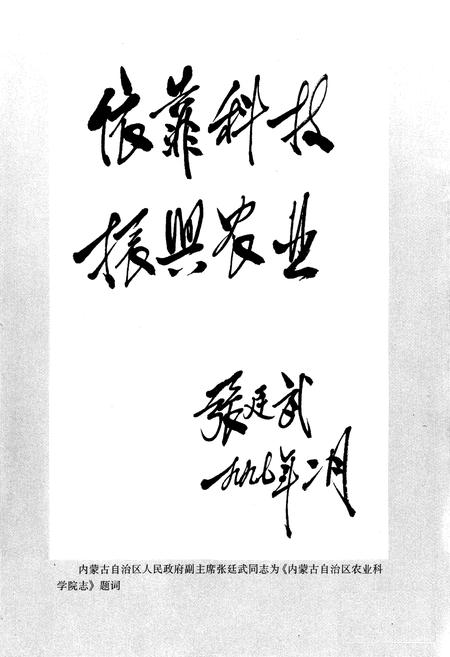 依靠科技
振興农业
張廷武
一九九七年二月
内蒙古自治区人民政府副主席张廷武同志为《内蒙古自治区农业科
学院志》题词